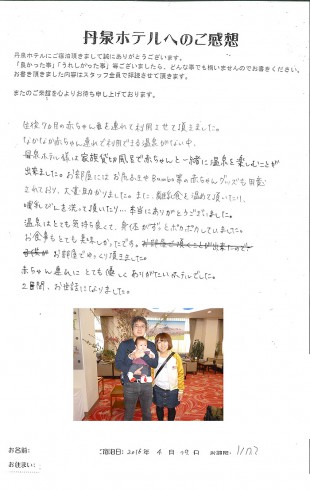 丹泉ホテルへのご感想
丹泉ホテルにご宿泊頂きまして誠にありがとうございます。
「良かった事」「うれしかった事」等ございましたら、どんな事でも構いませんのでお書きください。
お書き頂きました内容はスタッフ全員で拝読させて頂きます。
またのご来館を心よりお待ち申し上げております。
生後7ヶ月の赤ちゃんを連れて利用させて頂きました。
なかなか赤ちゃん連れで利用できる温泉がない中、
丹泉ホテル様は家族貸切風呂で赤ちゃんと一緒に温泉を楽しむことが
出来ました。お部屋には
Bumbo等の赤ちゃんグッズも用意
されており、大変助かりました。また、離乳食を温めて頂いたり、
哺乳びんを洗って頂いたり…本当にありがとうございました。
温泉はとても気持ち良くて、身体がずっとポカポカしていました。
お食事もとても美味しかったです。
お部屋でゆっくり頂きました。
赤ちゃん連れにとても優しくありがたいホテルでした。
2日間、お世話になりました。
お名前:
ご宿泊日: 2016年 4月 日 お部屋:
お住まい: